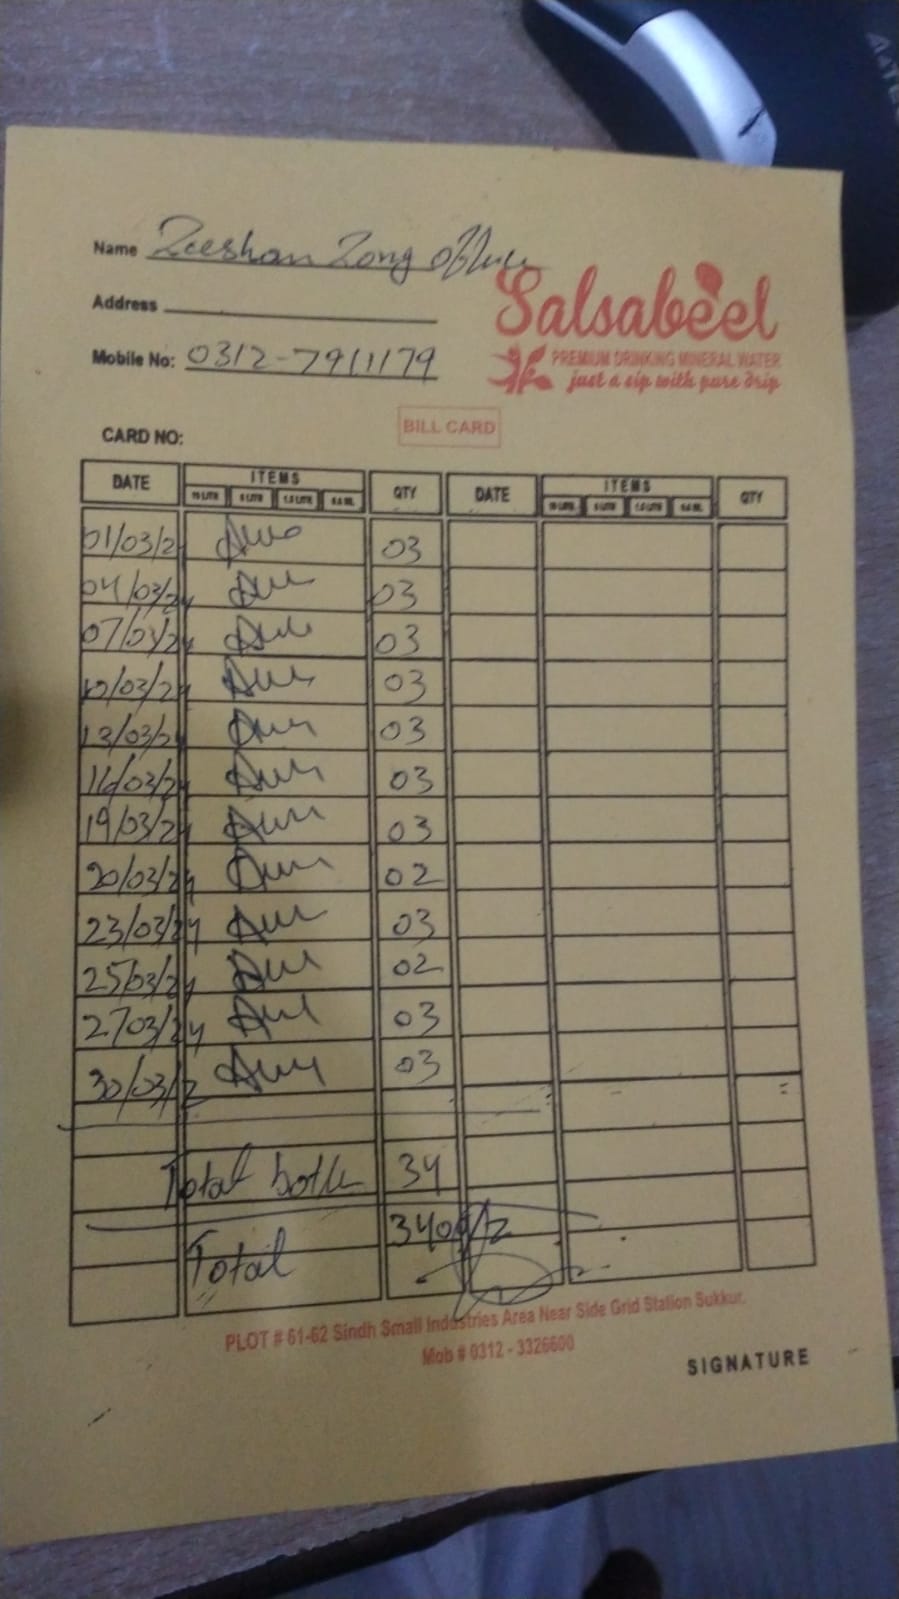 Name Zeeshan Zong office
Salsabeel
Address
PREMIUM DRINKING MINERAL WATER
just a sip with pure drip
Mobile No: 0312-7911179
BILL CARD
CARD NO:
DATE ITEMS QTY DATE ITEMS QTY
19 LITR 6 LITR 1.5 LITR 19 LITR 6 LITR 1.5 LITR
01/03/24 03
04/03/24 03
07/03/24 03
10/03/24 03
13/03/24 03
16/03/24 03
19/03/24 03
20/03/24 02
23/03/24 03
25/03/24 02
27/03/24 03
30/03/2 03
Total bottle 34
Total 3400/2
PLOT # 61-62 Sindh Small Industries Area Near Side Grid Station Sukkur.
Mob # 0312 - 3326600
SIGNATURE
A4TE